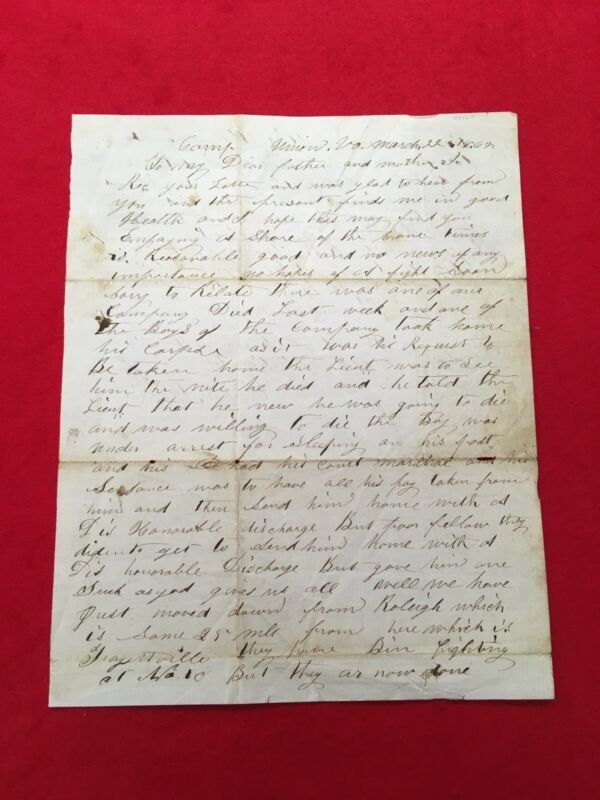 Camp Union, Va. March 22 1862
To My Dear father and mother I
Rec your Later and was glad to hear from
You and the present finds me in good
Health and I hope this may find you
Enjaying a Share of the Same times
is Reasonable good and no news of any
importance no hopes of a fight Soon
Sory to Relate there was one of our
Company Died Last week and one of
the Boys of the Company took home
his Corpse as it was his Request to
Be taken home the Lieut was to See
him the nite he died and he told the
Lieut that he new he was going to die
and was willing to die the Boy was
under arrest for Sleeping on his post
and his had his Court marshal and his
Sentance was to have all his pay taken from
him and then Send him home with a
Dis Honorable discharge But poor fellow they
dident get to Send him home with a
Dis honorable Discharge But god gave him one
Such as gives us all Well we have
Just moved down from Raleigh which
is Some 25 mls from here which is
Fayettville they have Bin fighting
at No. 10 But they ar now done